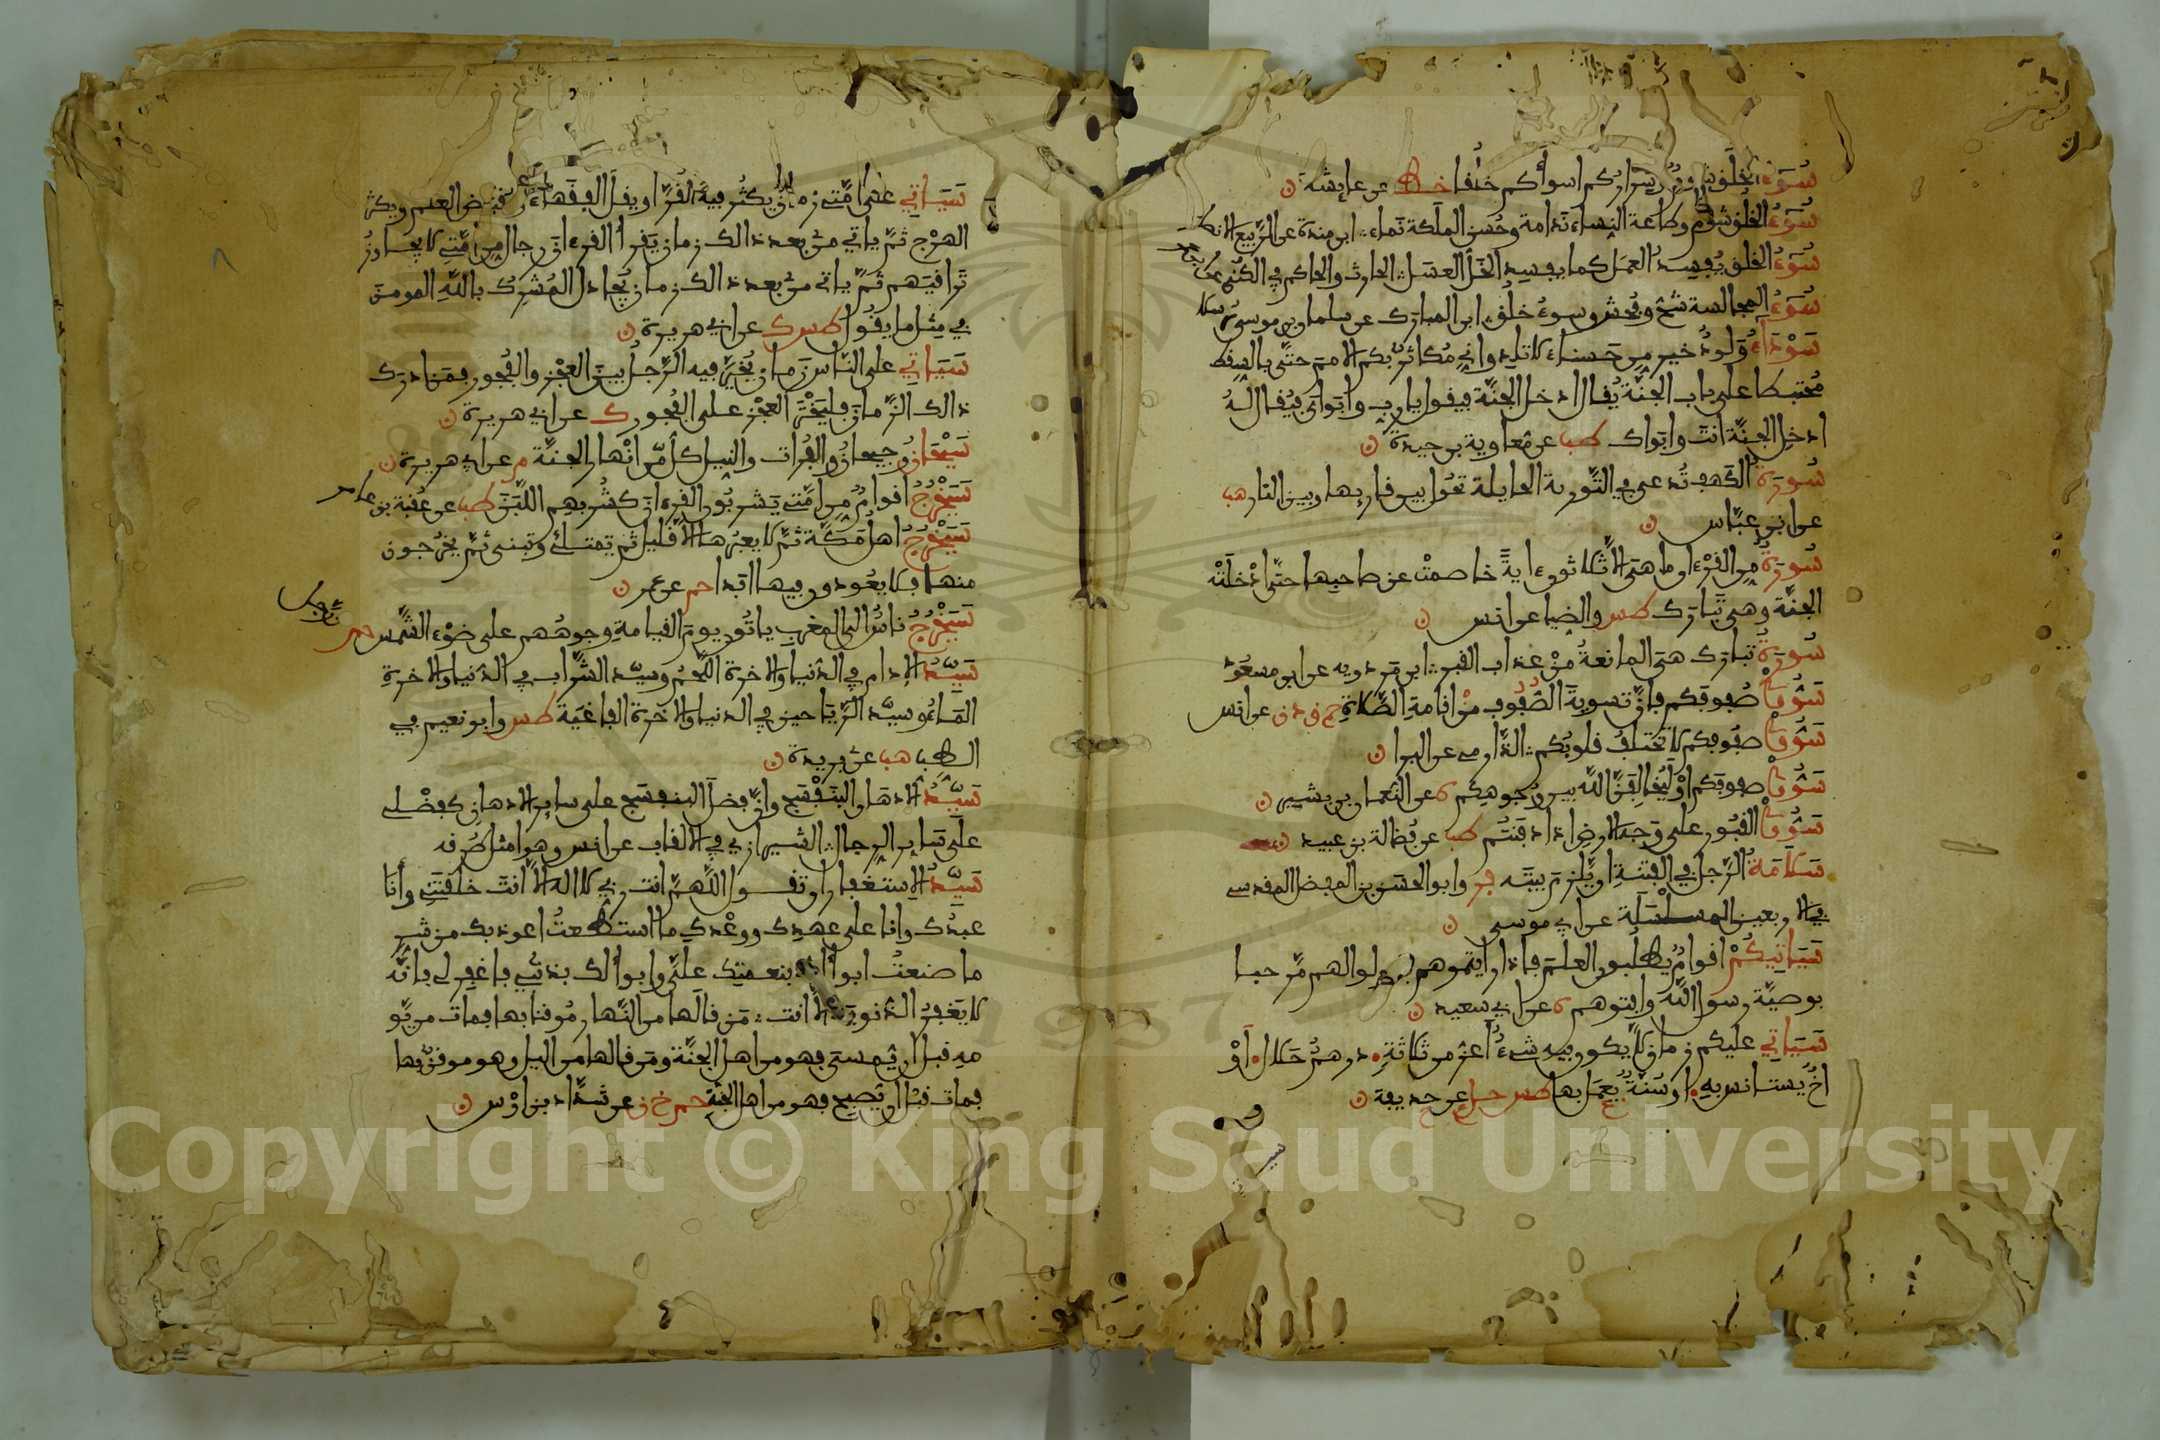 سُوءُ الخلق شؤم وشراركم اسوأكم خلُفا خط عن عايشة
سُوءُ الخلق شؤم وطاعة النساء ندامة وحُسن الملكة نماء ابن مندة عن الربيع الانصا
سُوءُ الخلق يُفسِدُ العمل كما يفسِد الخل العسل الحارث والحاكم في الكنى عن ابن عمر
سُوءُ المجالسة شح وفحش وسوءُ خلق ابن المبارك عن سليمان بن موسى مرسلا
سَوْدَاءُ وَلودٌ خير من حسناء لا تلد واني مُكاثر بكم الامم حتى بالسقط
مُحبنطئا على باب الجنة يُقال ادخل الجنة فيقول يا رب وابواي فيُقال لهُ
ادخل الجنة انت وابواك طب عن مُعاوية بن حيدة
سُورة الكهف تُدعى في التورية الحايلة تحُول بين قاريها وبين النار هب
عن ابن عباس
سُورة من القرءان ما هي الا ثلاثون ءاية خاصمت عن صاحبها حتى ادخلته
الجنة وهي تبارك طس والضيا عن انس
سُورة تبارك هي المانعة من عذاب القبر ابن مردويه عن ابن مسعود
سَوُّوا صُفوفكم فان تسوية الصُّفوف من اقامة الصلاة حم ق د ه عن انس
سَوُّوا صفوفكم لا تختلفُ قلوبُكم الدارمي عن البرا
سَوُّوا صفوفكم او ليُخالفن الله بين وُجوهكم ه عن النعمان بن بشير
سَوُّوا القبور على وجه الارض اذا دفنتُم طب عن فُضالة بن عبيد
سَلَامَةُ الرجل في الفتنة ان يلزم بيته فر وابو الحسن بن المفضل المقدسي
في الاربعين المسلسلة عن ابي موسى
سَيَاتِيكُمْ اقوامٌ يطلبون العلم فاذا رايتموهم فقولوا لهم مرحبا
بوصية رسول الله وافتوهم ه عن ابي سعيد
سَيَاتِي عليكم زمان لا يكون فيه شيءُ اعز من ثلاثةٍ درهمٌ حَلال أوْ
اخٌ يُستانس بهِ او سُنّةٌ يُعمل بها طس حل عن حذيفة
سَيَاتِي على امتي زمان يكثُر فيهِ القُرّا ويقل الفقهاء ويُقبض العلم ويكثر
الهرْج ثم ياتي من بعد ذالك زمان يقرأ القرءان رجال من أمتي لا يجاوزُ
تراقيهم ثم ياتي من بعد ذالك زمان يُجادل المُشرك بالله المومن
في مثل ما يقُول طس ك عن ابي هريرة
سَيَاتِي على الناس زمان يُخيّر فيه الرّجلُ بين العجْز والفُجور فمن ادرك
ذالك الزمان فليختَر العجْز على الفُجور ك عن ابي هريرة
سَيْحَانُ وجيحانُ والفُرات والنيل كل من انهار الجنة م عن ابي هريرة
سَيَخْرُجُ اقوامٌ من امتي يشربُون القرءان كشُربهم اللبن طب عن عُقبة بن عامر
سَيَخْرُجُ اهل مَكة ثم لا يعبُرها الا قليل ثم تمتلئ وتبنى ثم يخرُجون
منها فلا يعُودون فيها ابدا حم عن عمر
سَيَخْرُجُ ناسُ الى المغرب ياتُون يوم القيامةِ وجوهُهم على ضوْء الشمس حم
عن رجل
سَيِّدُ الإدام في الدنيا والاخرة اللحمُ وسيد الشراب في الدنيا والاخرة
الماءُ وسيد الرياحين في الدنيا والاخرة الفاغية طس وابو نعيم في
الطب هب عن بريدة
سَيِّدُ الادهان البَنفسج وان فضل البنفسج على ساير الادهان كفضْلي
على ساير الرجال الشيرازي في الالقاب عن انس وهو امثل طُرقه
سَيِّدُ الاِستغفار ان تقول اللهُم انت ربي لا اله الا انت خلقتني وأنَا
عبدُك وانا على عهدك ووعْدك ما استطعتُ اعوذ بك من شر
ما صنعتُ ابوءُ لك بنعمتك عليّ وابوءُ لك بذنبي فاغفر لي فانّه
لا يغفرُ الذنوب الا انت من قالها من النهار مُوقنا بها فمات من يو
مه قبل ان يُمسي فهو من اهل الجنة ومن قالها من اليل وهو موقن بها
فمات قبل ان يُصبح فهو من اهل الجنة حم خ ن عن شداد بن اوْس